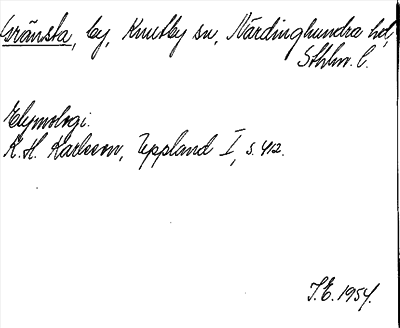 Gränsta, by, Knutby sn, Närdinghundra hd,
Sthlm. l.
Etymologi.
K. H. Karlsson, Uppland I, s. 412.
J. E. 1954.